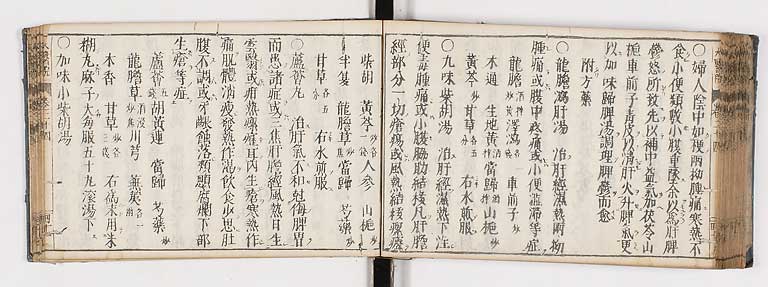 ○婦人陰中如梗兩拗腫痛寒熱不
食小便頻數小腹重墜余以爲肝脾
鬱怒所致先以補中益氣加茯苓山
梔車前子青皮以淸肝火升脾氣更
以加味歸脾湯調理脾鬱而愈
附方藥
○龍膽瀉肝湯 治肝經濕熱兩拗
腫痛或腹中疼痛或小便澁滯等症
龍膽 澤瀉 車前子
木通 生地黃 當歸 山梔
黃芩 甘草 右水煎服
○九味柴胡湯 治肝經濕熱下注
便毒腫痛或小腹脇肋結核凡肝膽
經部分一切瘡瘍或風熱結核瘰癧
柴胡 黃芩 人參 山梔
半夏 龍膽草 當歸 芍藥
甘草 右水煎服
○蘆薈丸 治肝氣不和尅侮脾胃
而患諸症或三焦肝膽經風熱目生
雲翳或疳熱瘰癧耳內生瘡寒熱作
痛肌體消瘦發熱作渴飲食少思肚
腹不調或牙齦蝕落頰頤腐爛下部
生瘡等症
蘆薈 胡黃連 當歸 芍藥
龍膽草 川芎 蕪荑
木香 甘草 右爲末用米
糊丸麻子大每服五十丸滾湯下
○加味小柴胡湯